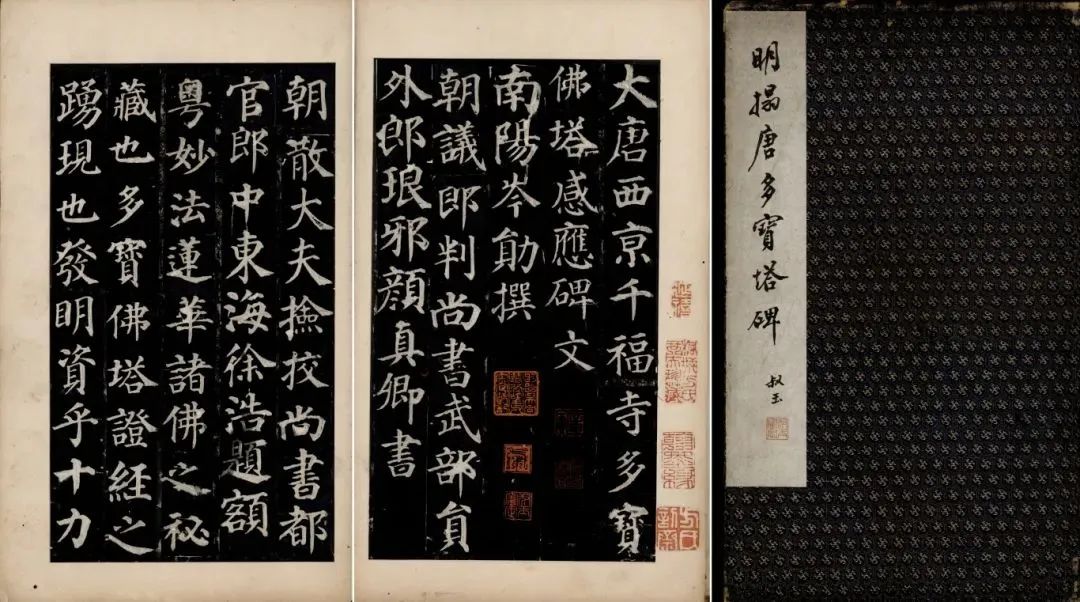 明搨唐多寶塔碑
叔玉
大唐西亰千福寺多寶
佛塔感應碑文
南陽岑勛撰
朝議郎判尚書武部貟
外郎琅邪顏真卿書
朝散大夫撿挍尚書都
官郎中東海徐浩題額
粵妙法蓮華諸佛之祕
藏也多寶佛塔證經之
踴現也發明資乎十力